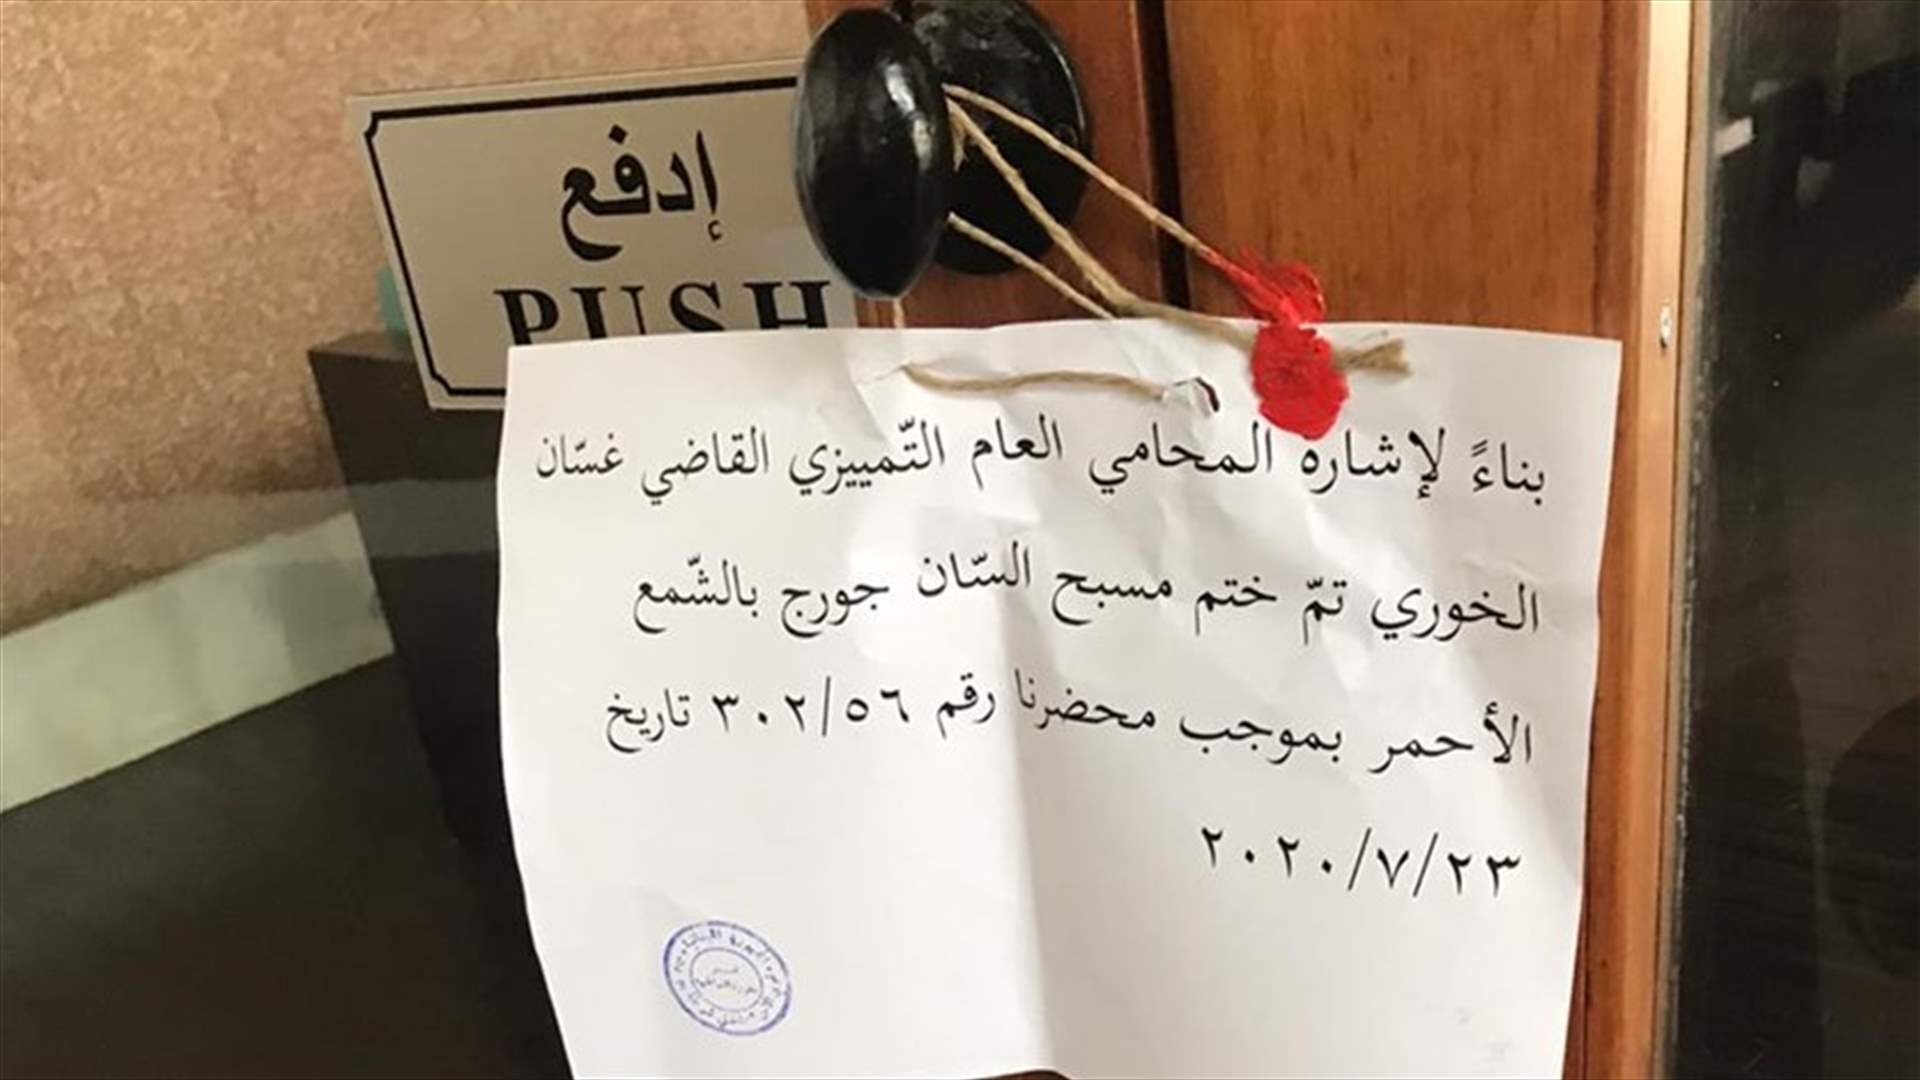 إدفع
PUSH
بناءً لإشاره المحامي العام التّمييزي القاضي غسّان
الخوري تمّ ختم مسبح السّان جورج بالشّمع
الأحمر بموجب محضرنا رقم ٣٠٢/٥٦ تاريخ
٢٠٢٠/٧/٢٣